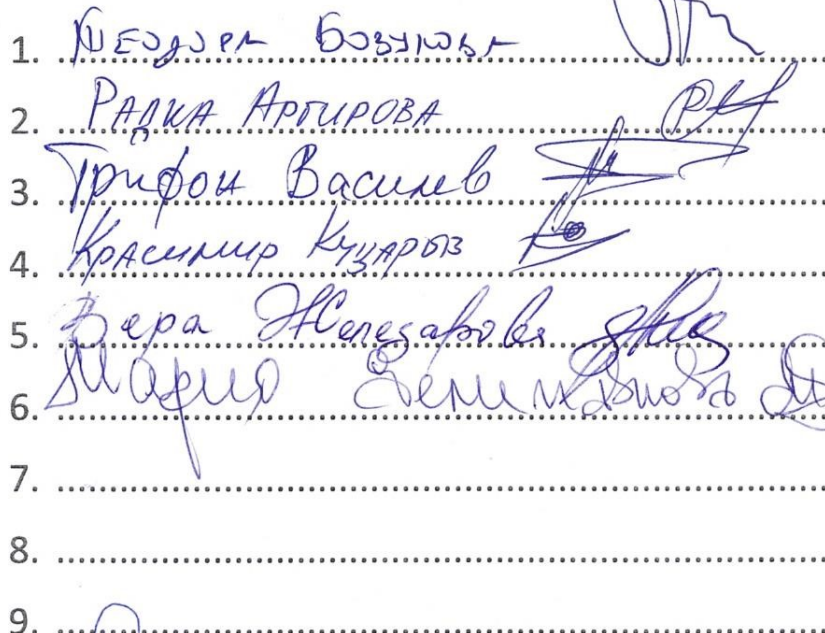 1. Теодора
2. Радка Аргирова
3. Трифон Василев
4. Красимир Куцаров
5. Вера Железарова
6. Мария
7.
8.
9.